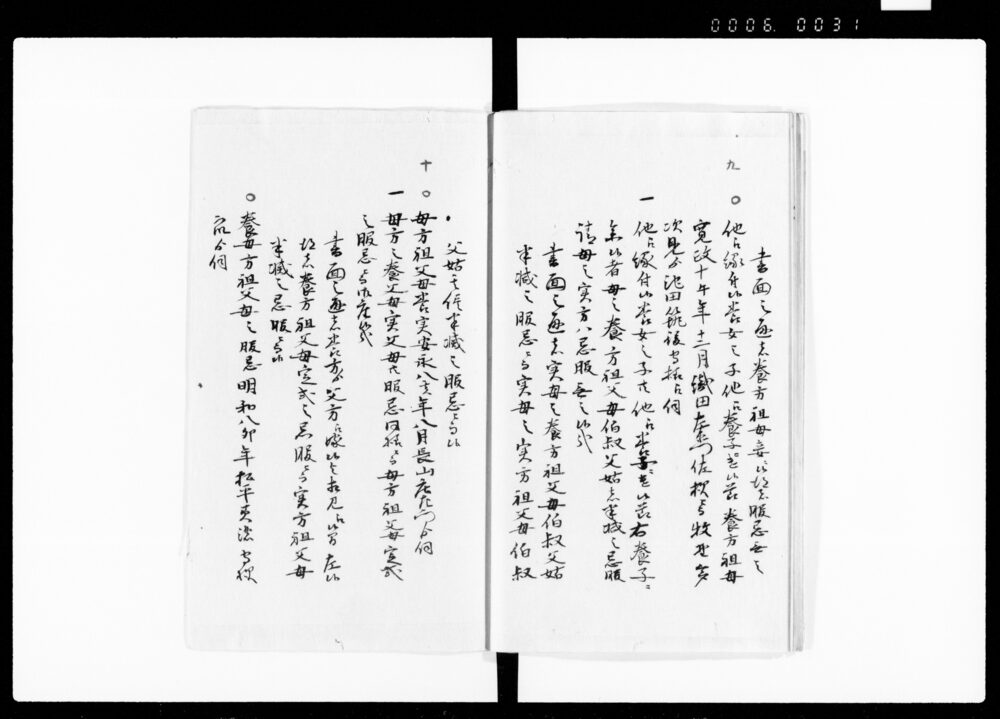 0006. 0031
書面之通者養方祖母妾ニ候者服忌無之
九 ○ 他江縁付候養女之子他江養子ニ遣候節養方祖母
寛政十午年十二月織田左衛門佐様より牧野
次見より池田筑後守様江伺
一 他江縁付候養女之子を他江養子ニ遣候節右養子ニ
参候者母之養方祖父母伯叔父姑者半減之忌服
請母之実方ハ忌服無之候哉
書面之通者実母之養方祖父母伯叔父姑
半減之服忌ニ而実母之実方祖父母伯叔
父姑も半減之服忌ニ而候
十 ○ 母方祖父母養実安永八亥年八月長山庄左衛門より伺
一 母方之養父母実父母共服忌同様ニ而母方祖父母定式
之服忌ニ而御座候哉
書面之通者養方より父方江
候者養方祖父母定式之忌服ニ而実方祖父母
半減之忌服ニ而候
○ 養母方祖父母之服忌明和八卯年松平
より伺